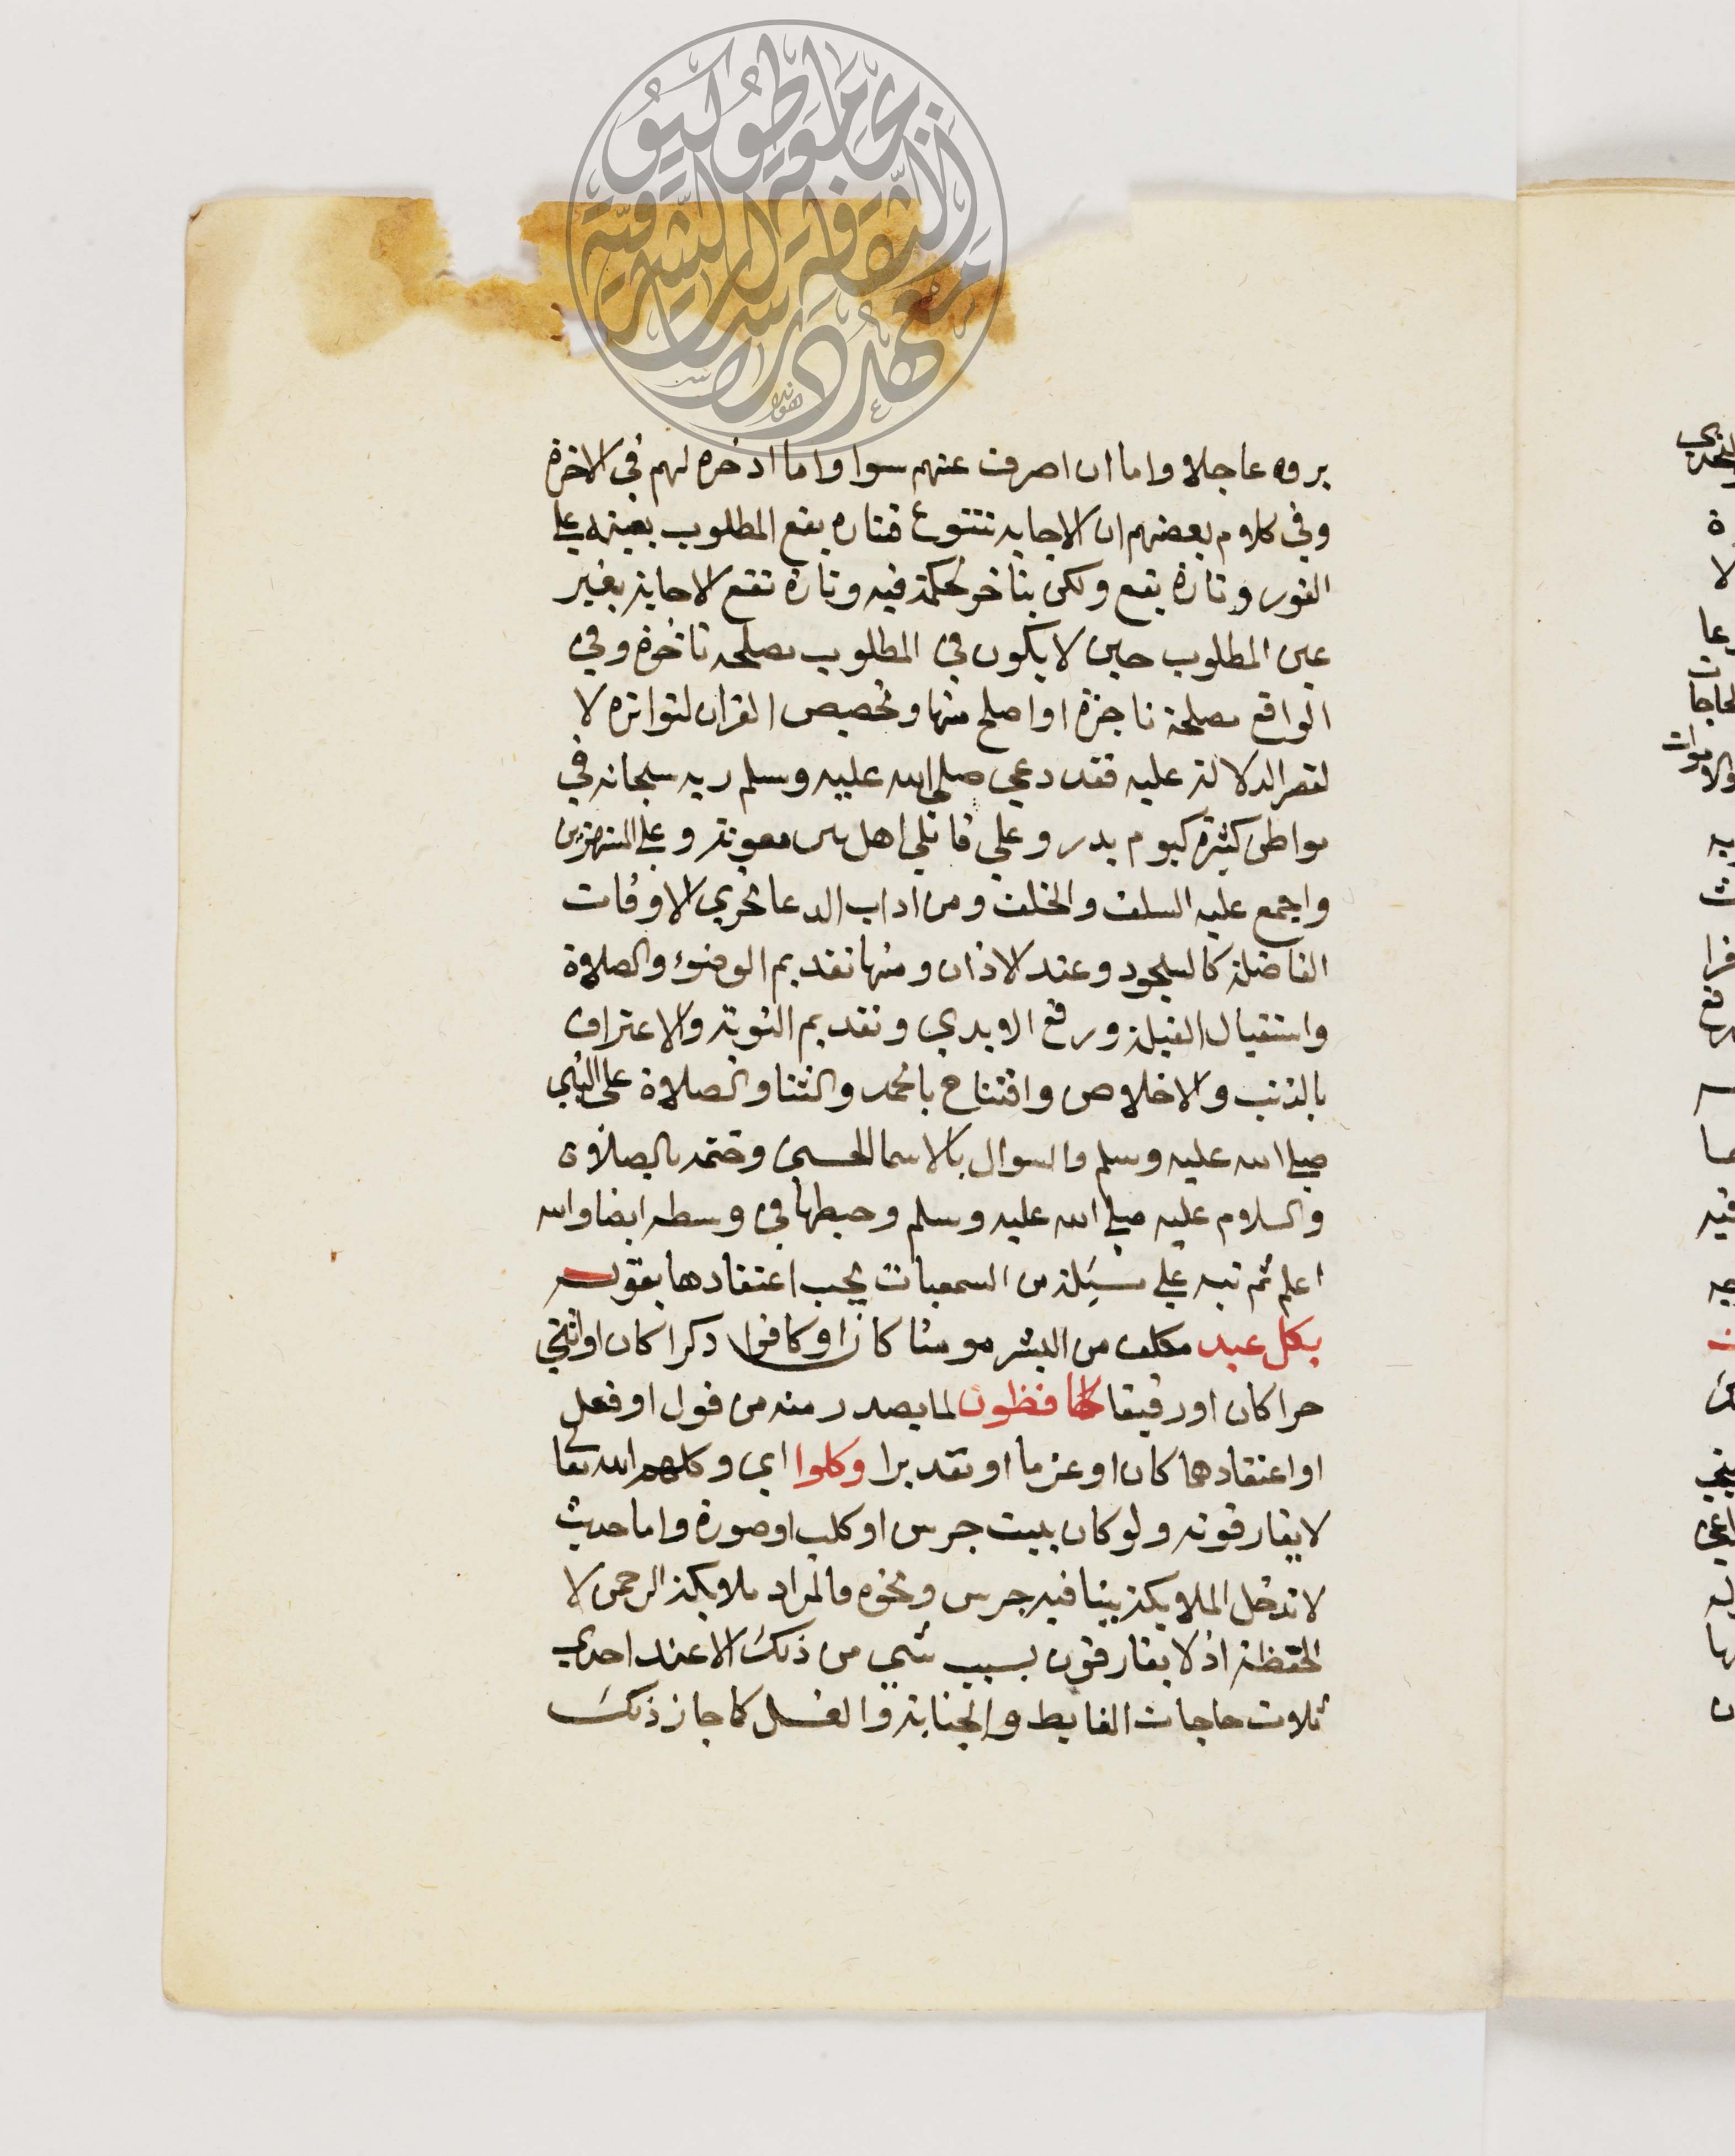 يروه عاجلا واما ان اصرف عنهم سوا واما ادخره لهم في الاخرة
وفي كلام بعضهم ان الاجابه تتنوع فتاره يقع المطلوب بعينه علي
الفور وتارة يقع ولكن يتاخر لحكمة فيه وتارة تقع الاجابة بغير
عين المطلوب حين لا يكون في المطلوب مصلحه ناخرة وفي
الواقع مصلحة ناجزة او اصلح منها وتخصيص القران لتواتره لا
لقصر الدلالة عليه فقد دعي صلي الله عليه وسلم ربه سبحانه في
مواطن كثيرة كيوم بدر وعلي قاتلي اهل بير معونة وعلي المستهزين
واجمع عليه السلف والخلف ومن اداب الدعا تحري الاوقات
الفاضلة كالسجود وعند الاذان ومنها تقديم الوضوء والصلاة
واستقبال القبلة ورفع الايدي وتقديم التوبة والاعتراف
بالذنب والاخلاص وافتتاح بالحمد والثنا والصلاة علي النبي
صلي الله عليه وسلم والسوال بالاسما الحسني وختمه بالصلاة
والسلام عليه صلي الله عليه وسلم وجعلها في وسطه ايضا والله
اعلم ثم نبه علي مسئلة من السمعيات يجب اعتقادها بقوله
بكل عبد مكلف من البشر مومنا كان او كافرا ذكرا كان او انثي
حرا كان او رقيقا حافظون لما يصدر منه من قول او فعل
او اعتقاد هما كان او عزما او تقديرا وكلوا اي وكلهم الله تعالي
لا يفارقونه ولو كان ببيت جرس او كلب او صورة واما حديث
لا تدخل الملايكة بيتا فيه جرس ونحوه فالمراد ملايكة الرحمن لا
الحفظة اذ لا يفارقون بسبب شي من ذلك الا عند احدي
ثلاث حاجات الغايط والجنابة والغسل كما جاز ذلك